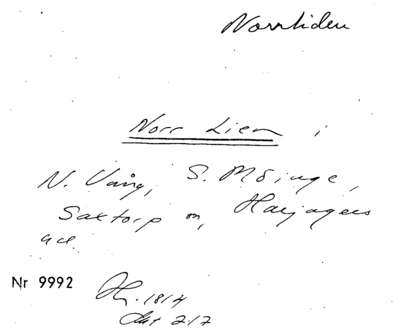 Norrliden
Norr Lien i
N. Vång, S. Möinge,
Saxtorp sn, Harjagers
hd.
Nr 9992
1814
Akt 217